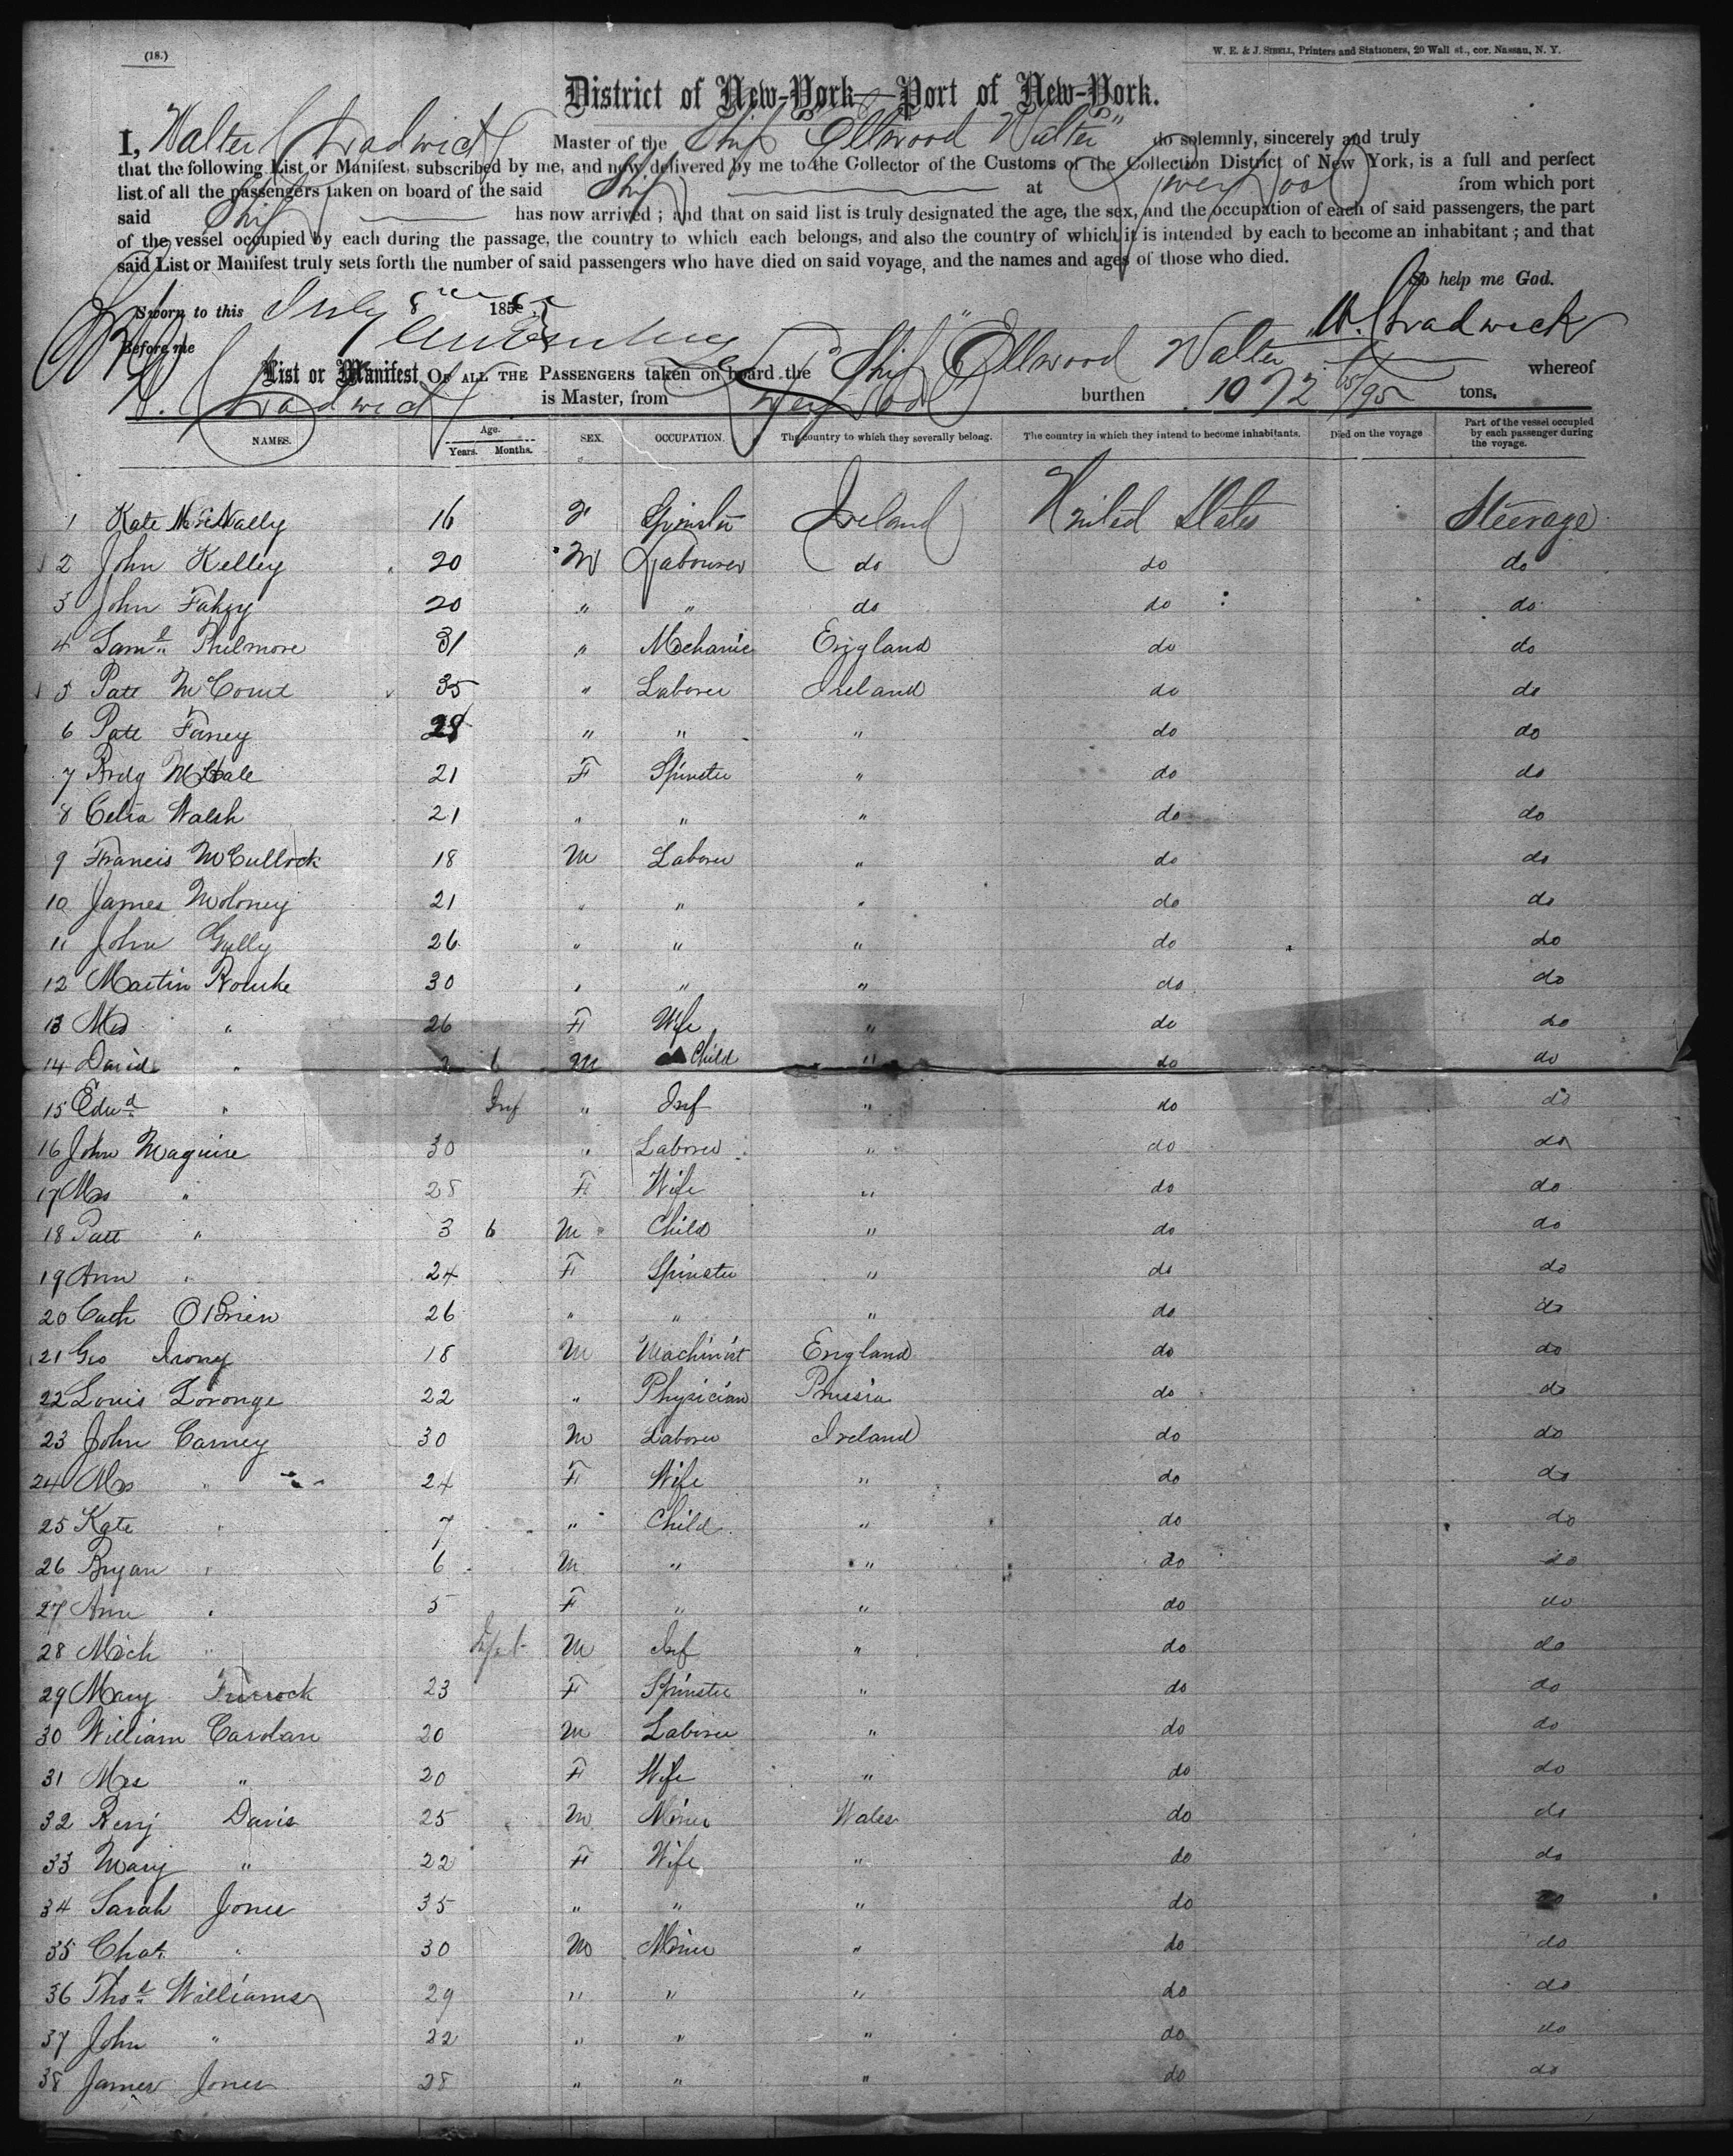 (18.)
W. E. & J. SIBELL, Printers and Stationers, 20 Wall st., cor. Nassau, N. Y.
District of New-York—Port of New-York.
I, Walter Chadwick Master of the Ship "Ellwood Walter" do solemnly, sincerely and truly
that the following List or Manifest, subscribed by me, and now delivered by me to the Collector of the Customs of the Collection District of New York, is a full and perfect
list of all the passengers taken on board of the said Ship at Liverpool from which port
said Ship has now arrived; and that on said list is truly designated the age, the sex, and the occupation of each of said passengers, the part
of the vessel occupied by each during the passage, the country to which each belongs, and also the country of which it is intended by each to become an inhabitant; and that
said List or Manifest truly sets forth the number of said passengers who have died on said voyage, and the names and ages of those who died.
So help me God.
Sworn to this July 8 185
Before me
W. Chadwick
List or Manifest OF ALL THE PASSENGERS taken on board the Ship "Ellwood Walter" whereof
W. Chadwick is Master, from Liverpool burthen 1072 /95 tons.
NAMES. Age. Years. Months. SEX. OCCUPATION. The country to which they severally belong. The country in which they intend to become inhabitants. Died on the voyage Part of the vessel occupied by each passenger during the voyage.
1 Kate McNally 16 F Spinster Ireland United States Steerage
2 John Kelley 20 M Labourer do do do
3 John Fahey 20 " " do do do
4 Saml Philmore 31 " Mechanic England do do
5 Patt McCourt 35 " Laborer Ireland do do
6 Patt Faney " " " do do
7 Brdg McHale 21 F Spinster " do do
8 Celia Walsh 21 " " " do do
9 Francis McCullock 18 M Laborer " do do
10 James Moloney 21 " " " do do
11 John Gully 26 " " " do do
12 Martin Rourke 30 " " " do do
13 Mrs " 26 F Wife " do do
14 David " 2 6 M Child " do do
15 Edwd " Inf " Inf " do do
16 John Maguire 30 " Laborer " do do
17 Mrs " 28 F Wife " do do
18 Patt " 3 6 M Child " do do
19 Ann " 24 F Spinster " do do
20 Cath O'Brien 26 " " " do do
21 Geo Irony 18 M Machinist England do do
22 Louis Loronge 22 " Physician Prussia do do
23 John Carney 30 M Laborer Ireland do do
24 Mrs " 24 F Wife " do do
25 Kate " 7 " Child " do do
26 Bryan " 6 M " " do do
27 Ann " 5 F " " do do
28 Mich " Infant M Inf " do do
29 Mary 23 F Spinster " do do
30 William Carolan 20 M Laborer " do do
31 Mrs " 20 F Wife " do do
32 Benj Davis 25 M Miner Wales do do
33 Mary " 22 F Wife " do do
34 Sarah Jones 35 " " " do do
35 Chas " 30 M Miner " do do
36 Thos Williams 29 " " " do do
37 John " 22 " " " do do
38 James Jones 28 " " " do do